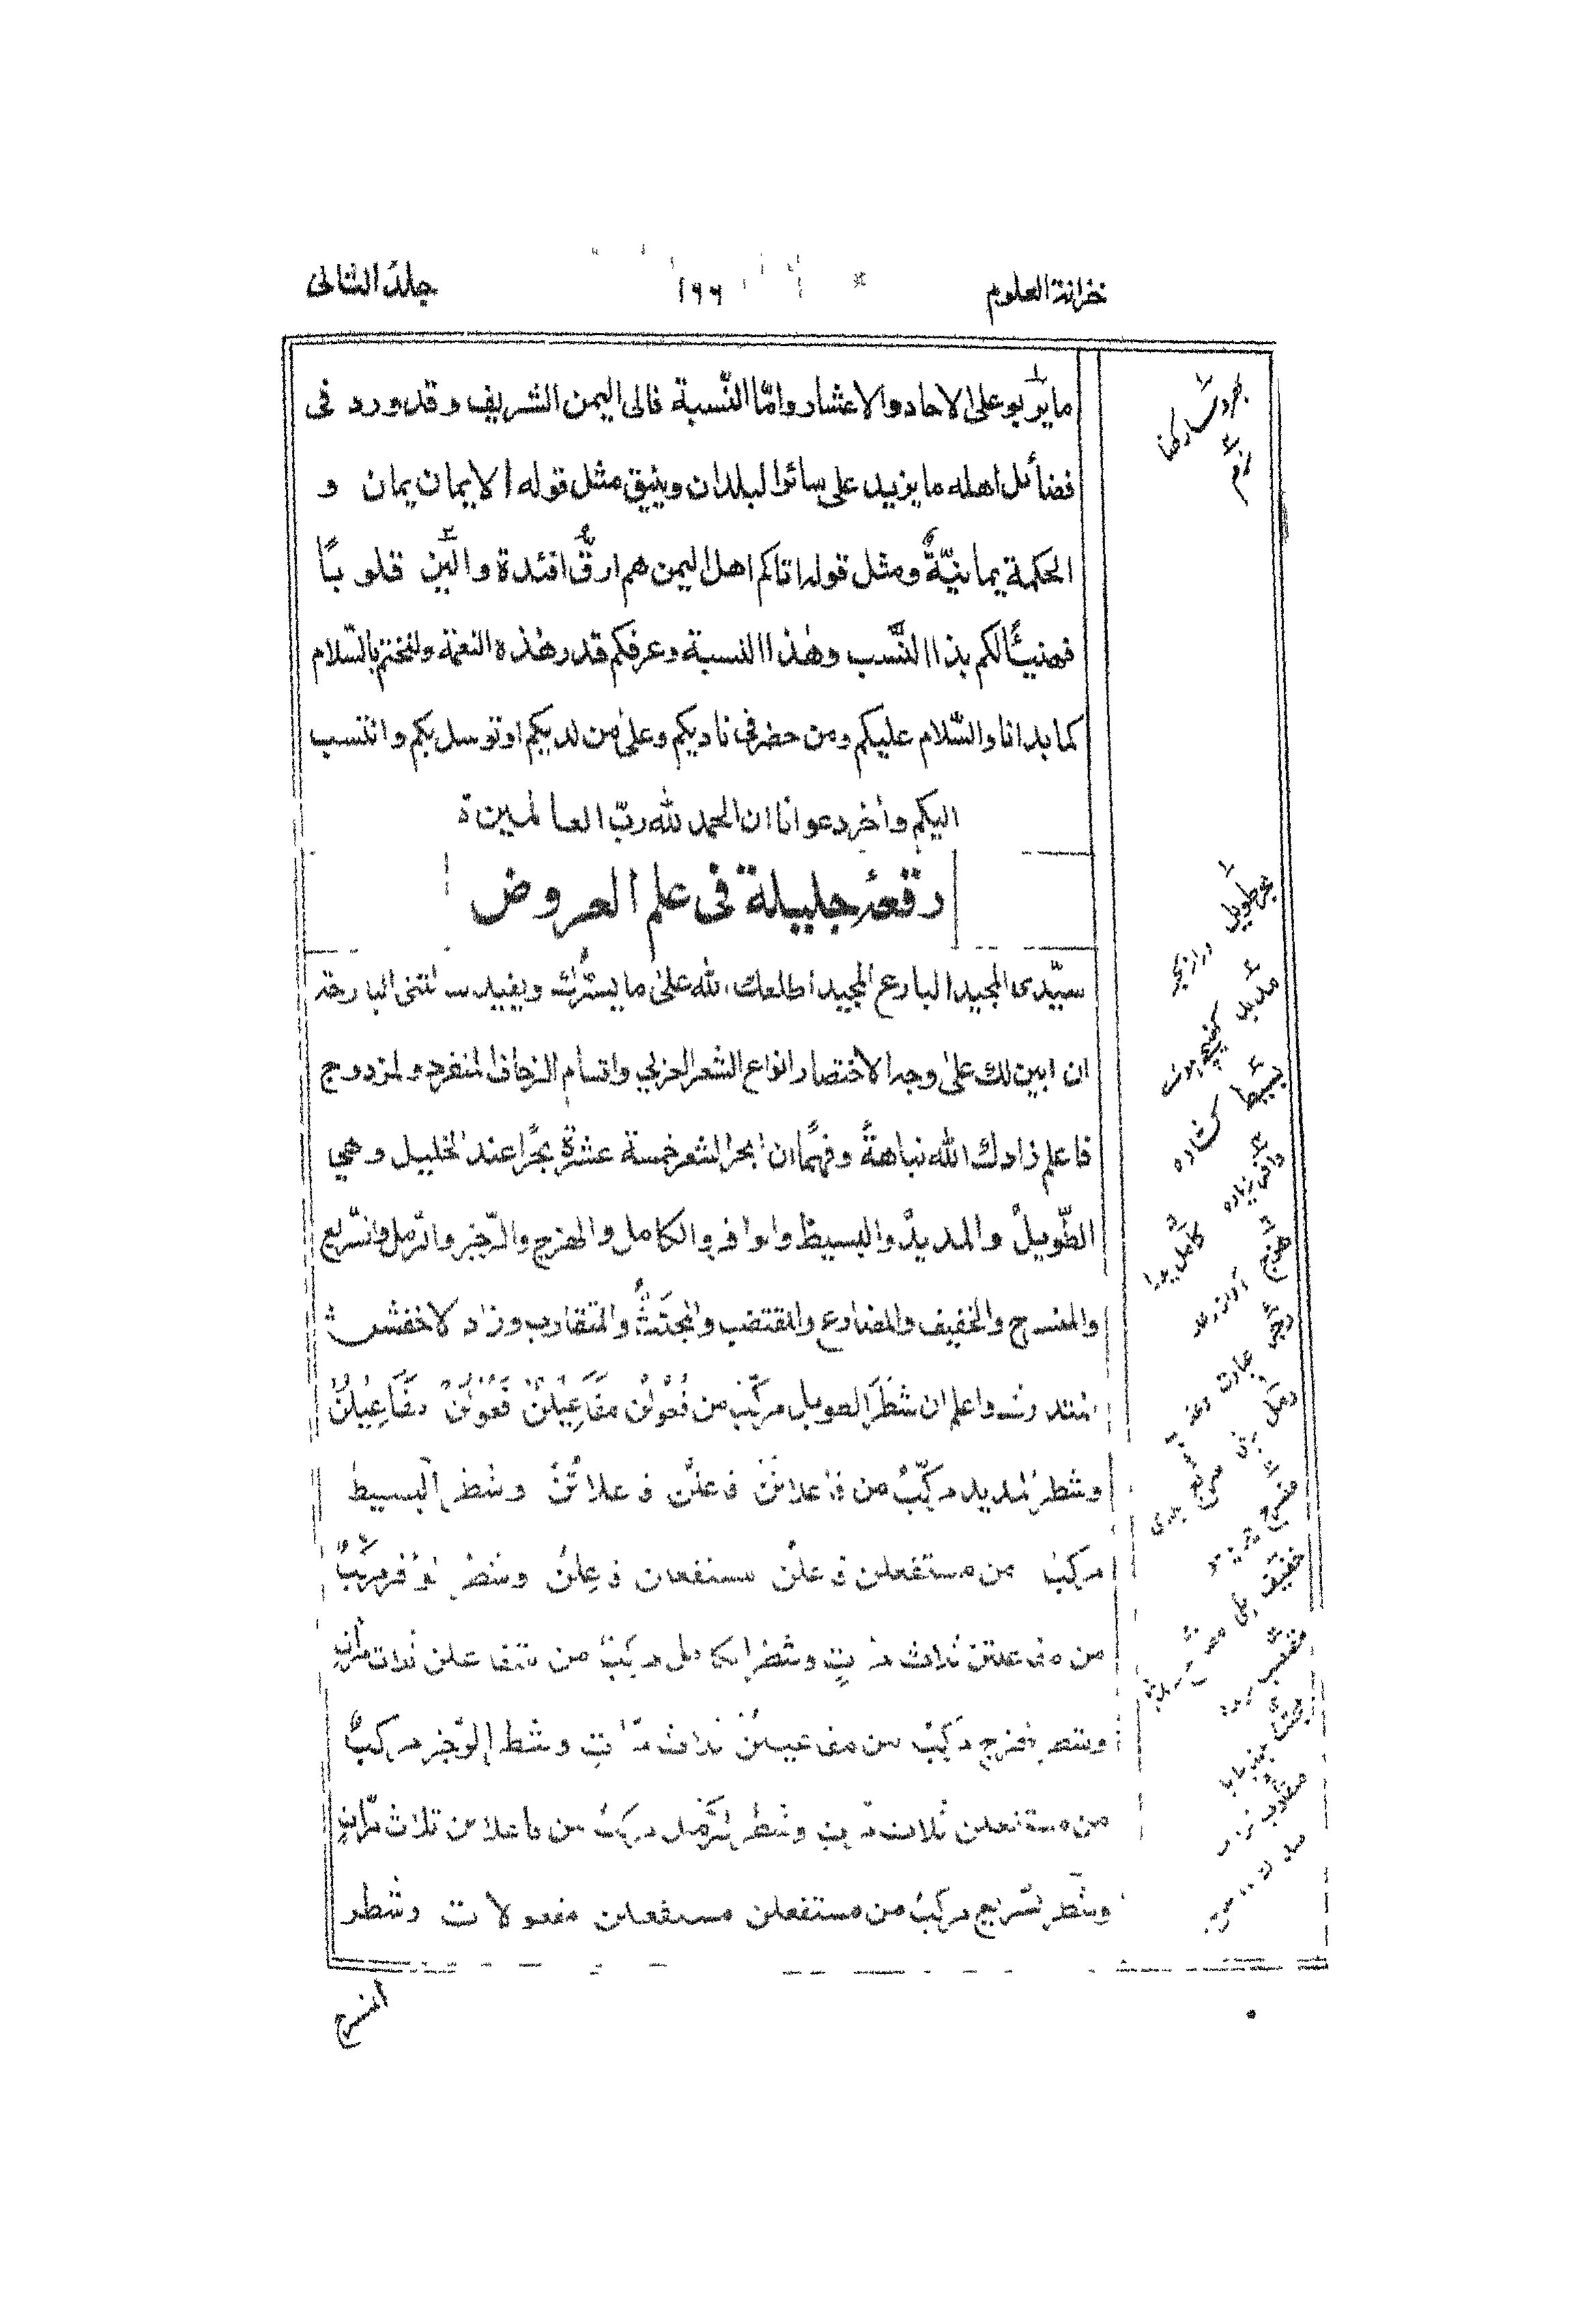 خزانة العلوم
١٦٦
جلد الثانى
ما يربو على الاحاد والاعشار وامّا النّسبة فالى اليمن الشريف وقد ورد فى
فضائل اهله ما يزيد على سائر البلدان وينيق مثل قوله الايمان يمان و
الحكمة يمانيّةٌ ومثل قوله اتاكم اهل اليمن هم ارقُّ افئدة والين قلوبًا
فهنيئًا لكم بذا النَّسب وهٰذا النسبة وعرفكم قدر هٰذه النعمة ولنختم بالسّلام
كما بدانا والسّلام عليكم ومن حضر فى ناديكم وعلىٰ من لديكم او توسل بكم وانتسب
اليكم واٰخر دعوانا ان الحمد لله ربّ العالمين ة
رقعۀ جليلة فى علم العروض
سيّدى المجيد البارع المجيد اطلعك الله علىٰ ما يسُّرك ويفيد سالتنى البارحة
ان ابين لك علىٰ وجه الاختصار انواع الشعر العربي واقسام الزحاف المنفرد والمزدوج
فاعلم زادك الله نباهةً وفهمًا ان ابحر الشعر خمسة عشرة بحرًا عند الخليل وهى
الطّويل والمديد والبسيط والوافر والكامل والهزج والرّجز والرّمل والسّريع
والمنسرح والخفيف والمضارع والمقتضب والمجتَثُّ والمتقارب وزاد الاخفش
المتدارك واعلم ان شَطْرَ الطويل مركّب من فُعُولُن مفَاعِيلُنْ فَعُولُنْ مفَاعِيلُنْ
وشطر المديد مركّبٌ من فاعلاتن فاعلن فاعلاتُنْ وشطر البسيط
مركبٌ من مستفعلن فاعلن مستفعلن فاعِلنْ وشطر الوافر مركّبٌ
من مفاعلتن ثلاث مراتٍ وشطر الكامل مركبٌ من متفاعلن ثلاث مراتٍ
وشطر الهزج مركبٌ من مفاعيلنْ ثلاث مرّاتٍ وشطر الرّجز مركبٌ
من مستفعلن ثلاث مراتٍ وشطر الرَّمل مركبٌ من فاعلاتن ثلاث مرّاتٍ
وشطر السّريع مركبٌ من مستفعلن مستفعلن مفعولات وشطر
المنسرح
بحر طويل
مديد
بسيط كشاده
وافر زياده
كامل پورا
هزج
رجز
رمل
سريع جلدى
منسرح
خفيف
مقتضب
متقارب